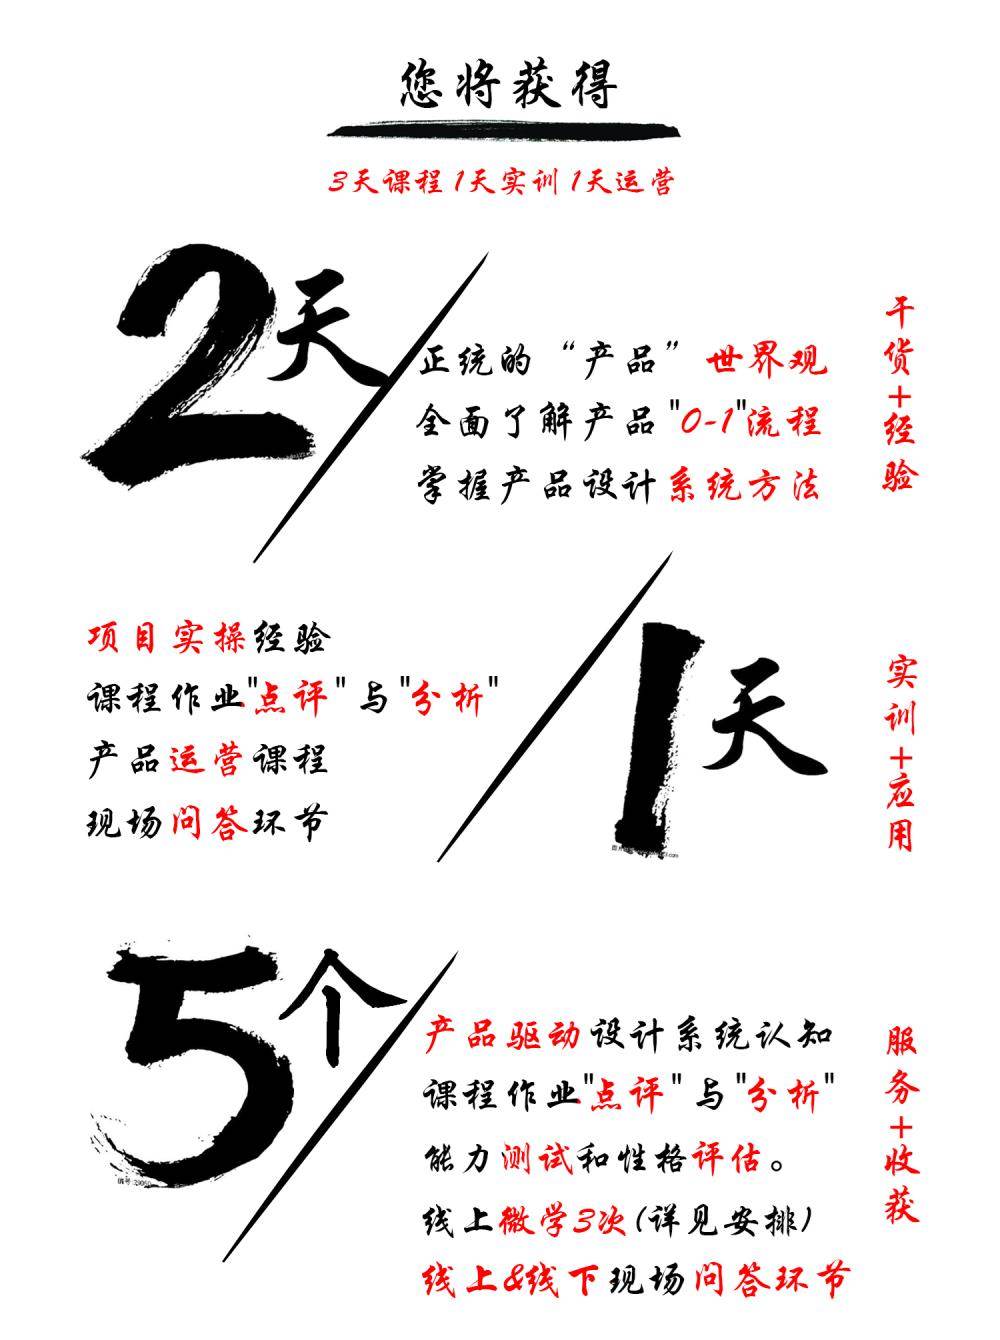 您将获得
3天课程 1天实训 1天运营
2天
正统的“产品”世界观
全面了解产品"0-1"流程
掌握产品设计系统方法
干货+经验
项目实操经验
课程作业"点评"与"分析"
产品运营课程
现场问答环节
1天
实训+应用
5个
产品驱动设计系统认知
课程作业"点评"与"分析"
能力测试和性格评估。
线上微学3次(详见安排)
线上&线下现场问答环节
服务+收获